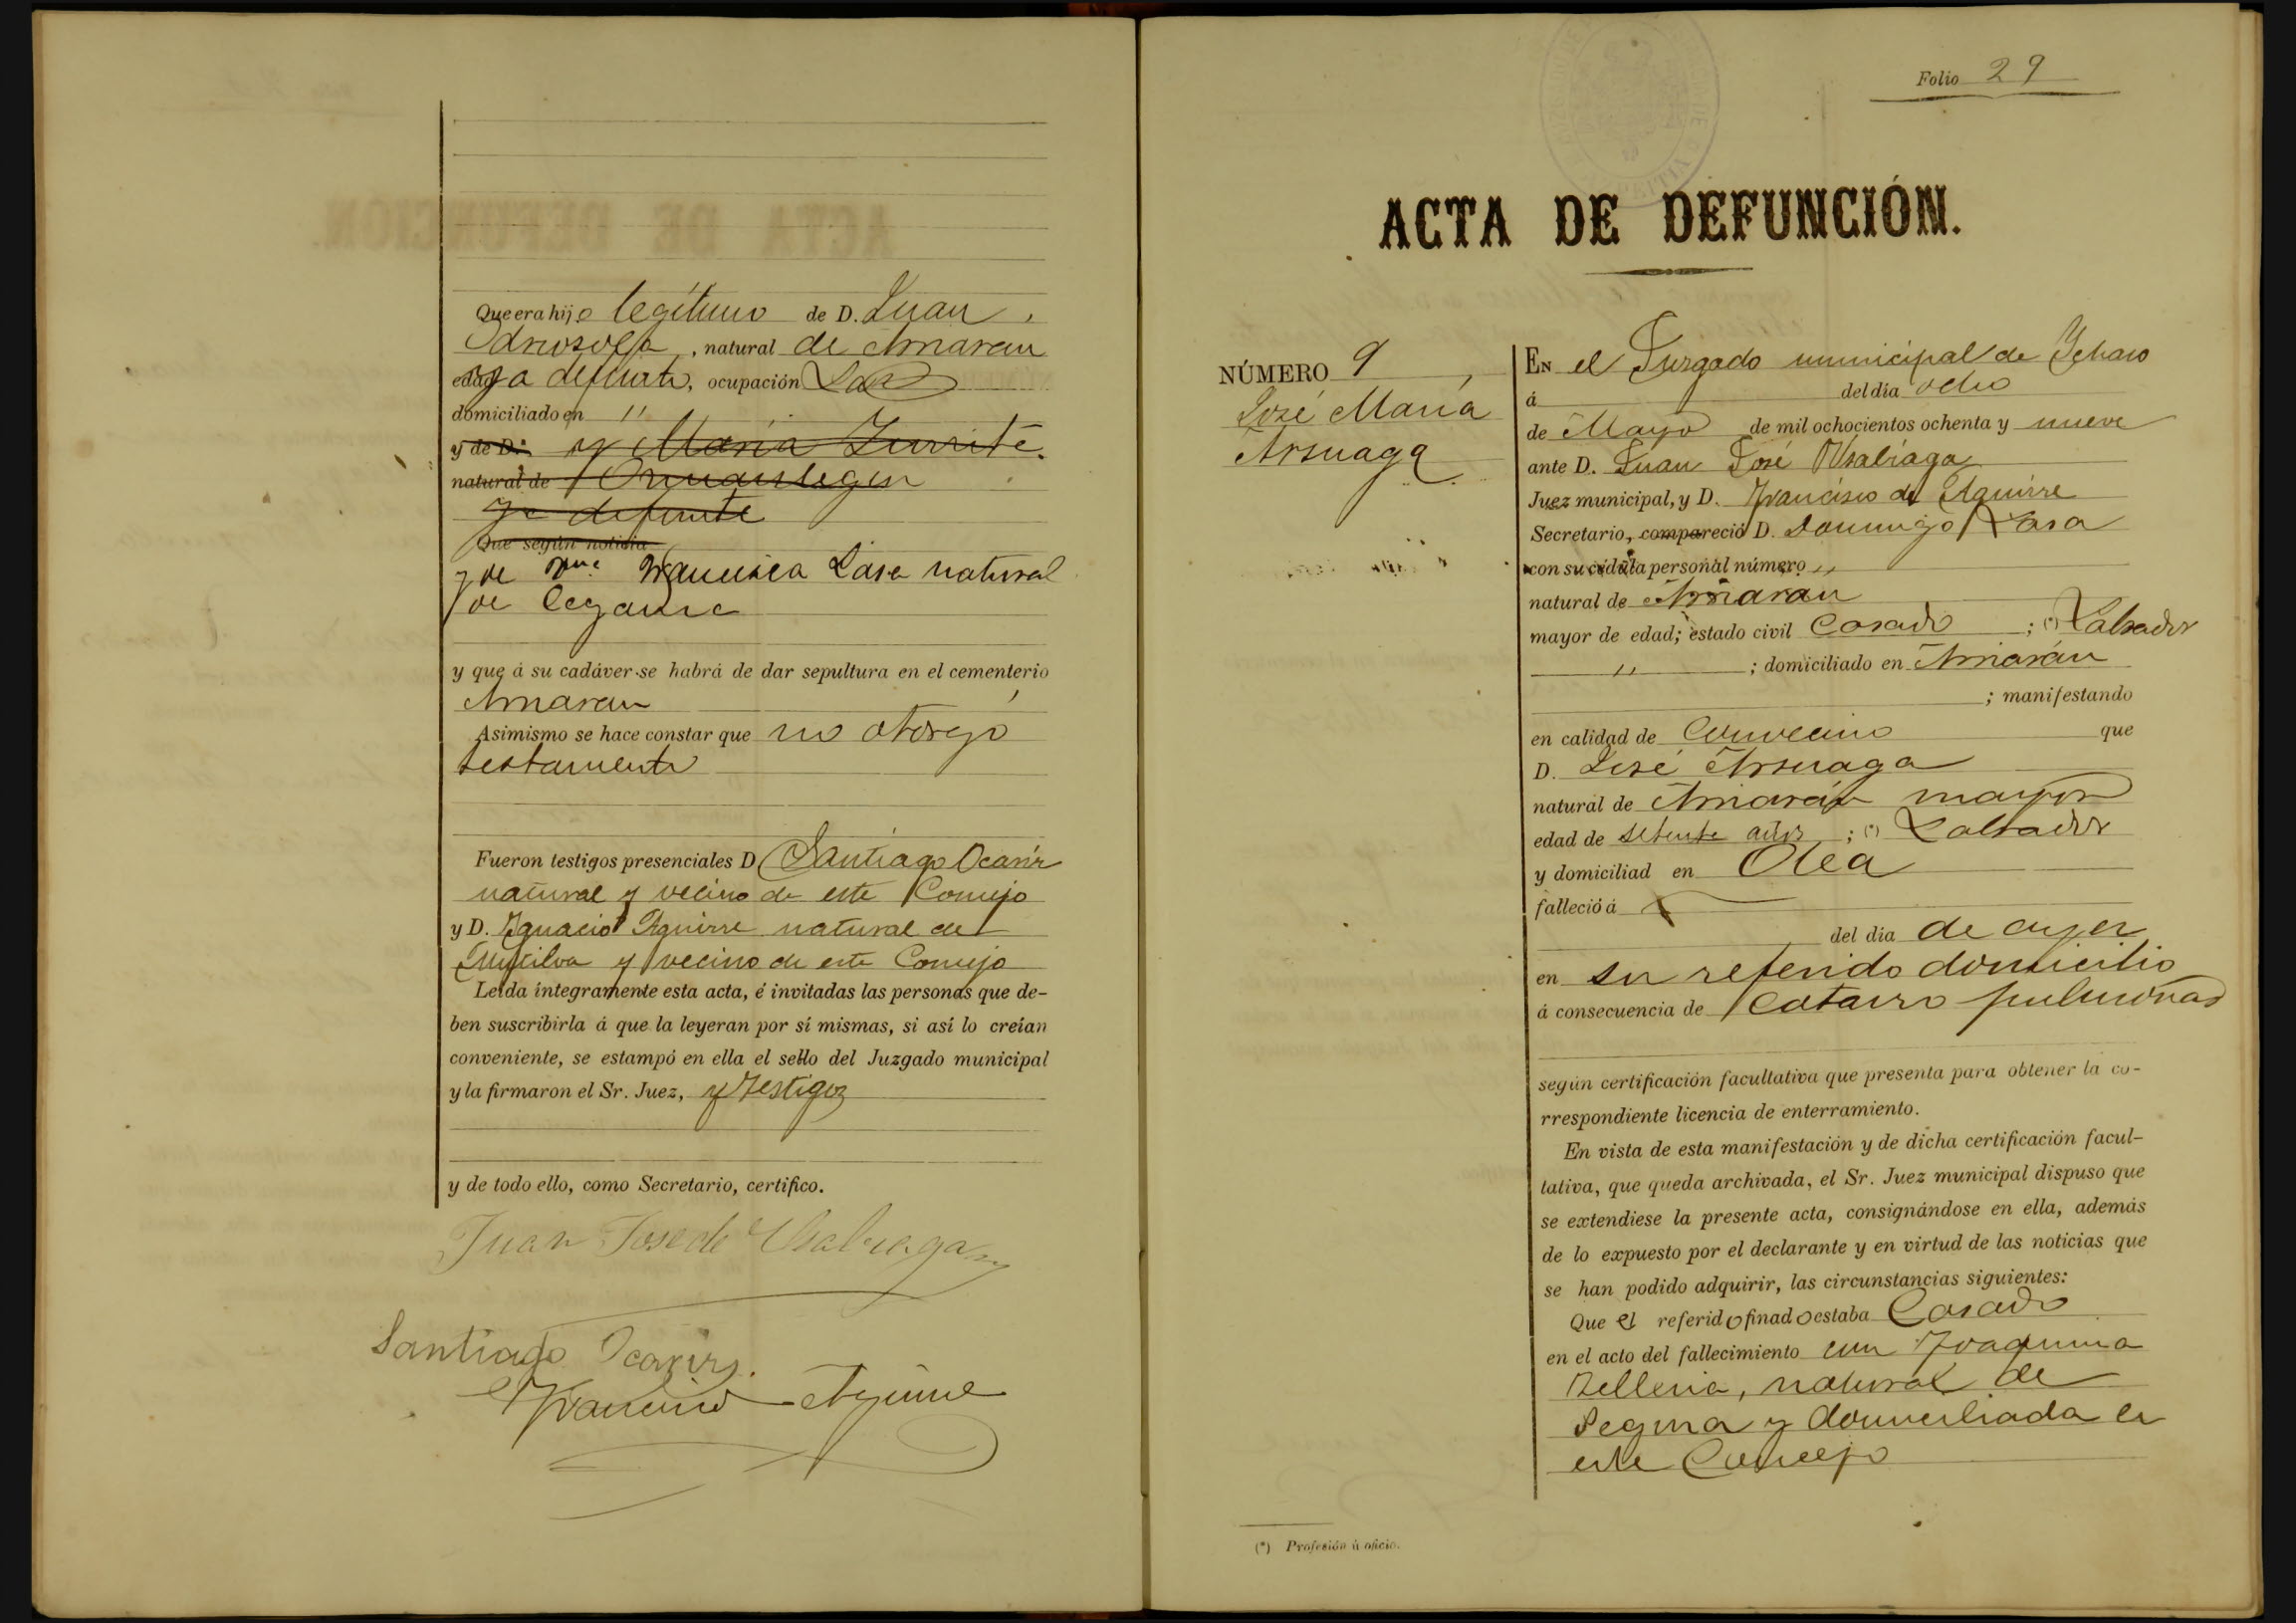 Que era hijo legítimo de D. Juan
Odriosola, natural de Amaran
edad ya defunto, ocupación
domiciliado en "
y de D.ª y Maria Zurrite.
natural de Ormaistegui
ya defunta
Que según noticia
y de Francisca Lasa natural
de
y que á su cadáver se habrá de dar sepultura en el cementerio
Amaran
Asimismo se hace constar que no otorgó
testamento
Fueron testigos presenciales D Santiago Ocariz
natural y vecino de este Concejo
y D. Ignacio Aguirre natural de
Mutiloa y vecino de este Concejo
Leida íntegramente esta acta, é invitadas las personas que de-
ben suscribirla á que la leyeran por sí mismas, si así lo creían
conveniente, se estampó en ella el sello del Juzgado municipal
y la firmaron el Sr. Juez, y testigos
y de todo ello, como Secretario, certifico.
Juan Jose de Usabiaga
Santiago Ocariz.
Francisco Aguirre
Folio 29
ACTA DE DEFUNCIÓN.
NÚMERO 9
José María
Arsuaga
EN el Juzgado municipal de Ychaso
á del día ocho
de Mayo de mil ochocientos ochenta y nueve
ante D. Juan José Usabiaga
Juez municipal, y D. Francisco de Aguirre
Secretario, compareció D. Domingo Lasa
con su cédula personal número "
natural de Amaran
mayor de edad; estado civil Casado ; (*) Labrador
" ; domiciliado en Amarán
; manifestando
en calidad de Convecino que
D. José Arsuaga
natural de Amarán mayor
edad de setenta años ; (*) Labrador
y domiciliad en Olea
falleció á
del día de ayer
en su referido domicilio
á consecuencia de Catarro pulmonar
según certificación facultativa que presenta para obtener la co-
rrespondiente licencia de enterramiento.
En vista de esta manifestación y de dicha certificación facul-
tativa, que queda archivada, el Sr. Juez municipal dispuso que
se extendiese la presente acta, consignándose en ella, además
de lo expuesto por el declarante y en virtud de las noticias que
se han podido adquirir, las circunstancias siguientes:
Que el referido finado estaba Casado
en el acto del fallecimiento con Joaquina
Telleria, natural de
Segura y domiciliada en
este Concejo
(*) Profesión ú oficio.